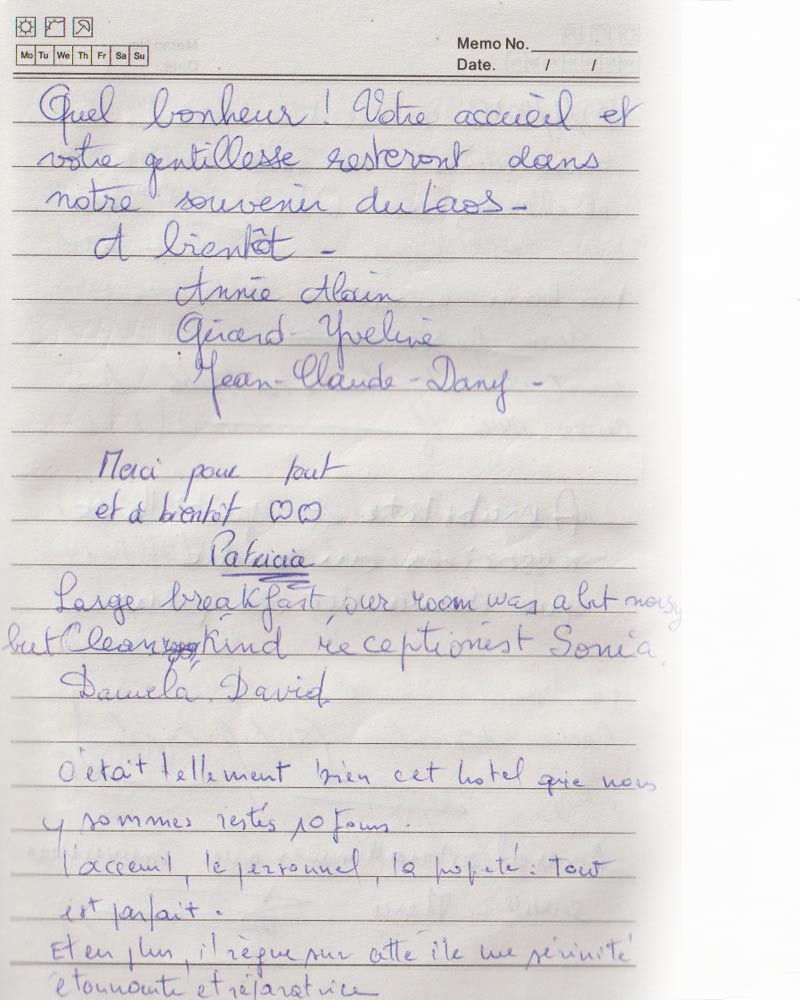 Mo Tu We Th Fr Sa Su
Memo No.
Date. / /
Quel bonheur ! Votre accueil et
votre gentillesse resteront dans
notre souvenir du Laos -
A bientôt -
Annie Alain
Gérard - Yveline
Jean-Claude - Dany -
Merci pour tout
et à bientôt
Patricia
Large breakfast, our room was a bit noisy
but Clean, Kind receptionist Sonia.
Daniela, David
C'était tellement bien cet hotel que nous
y sommes restés 10 Jours.
l'acceuil, le personnel, la propeté : tout
est parfait.
Et en plus, il règne sur cette île une sérénité
étonnante et réparatrice